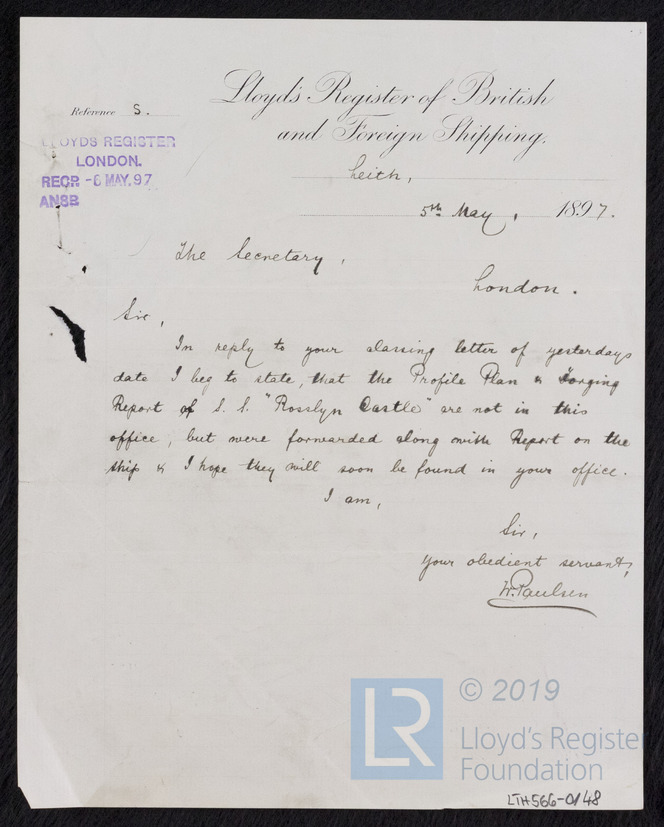 Lloyd's Register of British
and Foreign Shipping.
Reference S.
LLOYDS REGISTER
LONDON.
RECR -6 MAY. 97
ANSR
Leith,
5th May, 1897.
The Secretary,
London.
Sir,
In reply to your classing letter of yesterdays
date I beg to state, that the Profile Plan & Forging
Report of S. S. "Rosslyn Castle" are not in this
office, but were forwarded along with Report on the
ship & I hope they will soon be found in your office.
I am,
Sir,
your obedient servant,
W. Paulsen
LR
© 2019
Lloyd's Register
Foundation
LTH566-0148